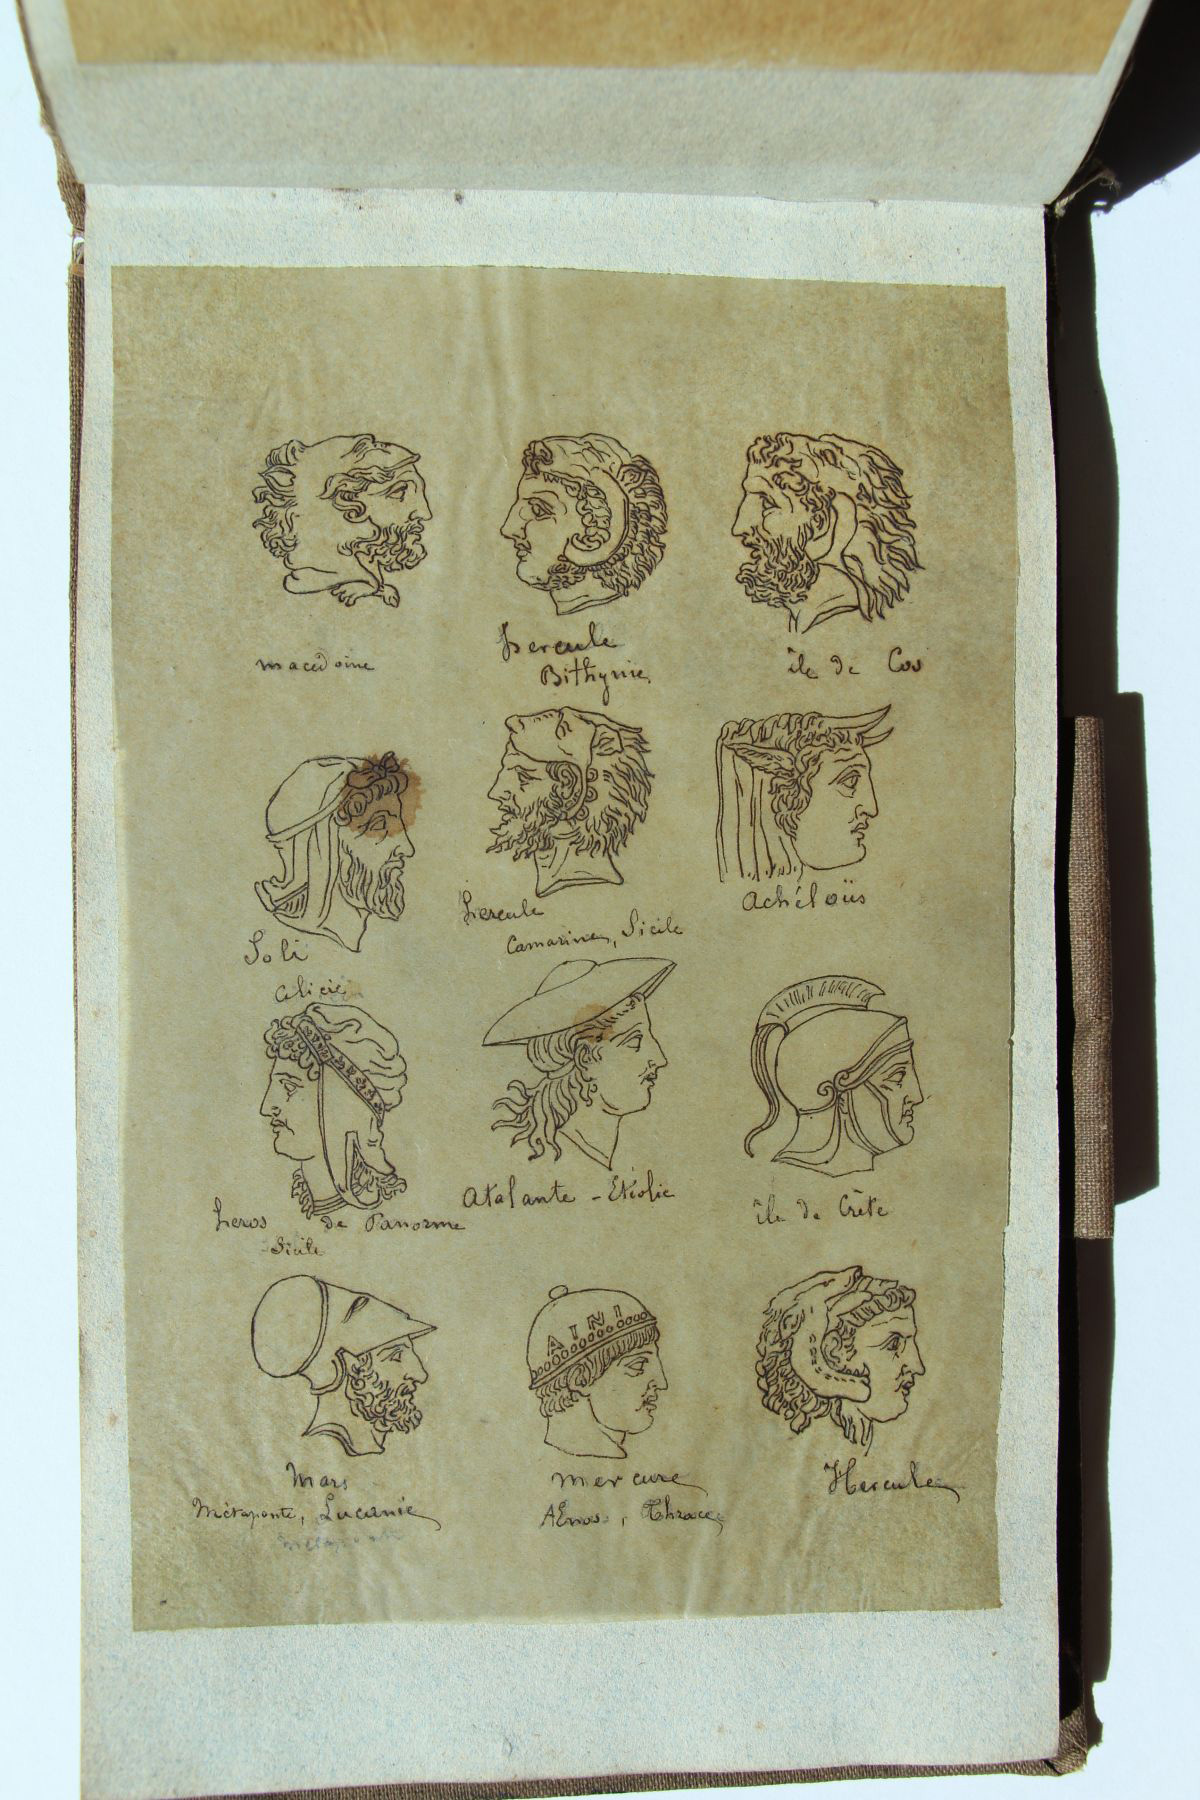 macédoine
hercule
Bithynie
île de Cos
hercule
Camarine, Sicile
Achéloüs
Soli
Cilicie
heros de Panorme
Sicile
Atalante - Etolie
île de Crète
AINI
Mars
Métaponte, Lucanie
Mercure
AEnos, Thrace
Hercule